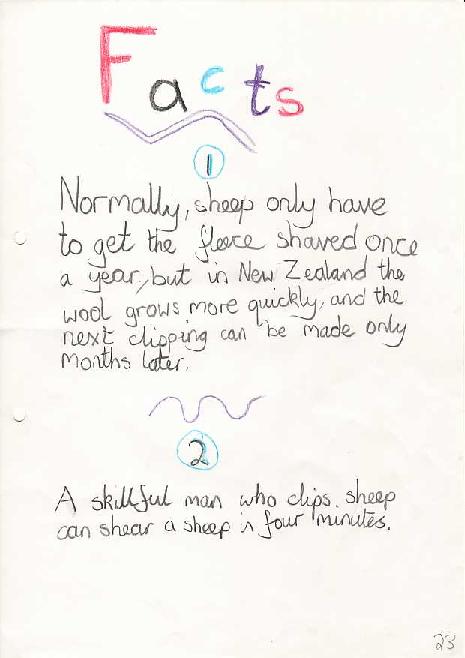 Facts
1
Normally, sheep only have
to get the fleece shaved once
a year, but in New Zealand the
wool grows more quickly, and the
next clipping can be made only
months later.
2
A skillful man who clips sheep
can shear a sheep in four minutes.
23